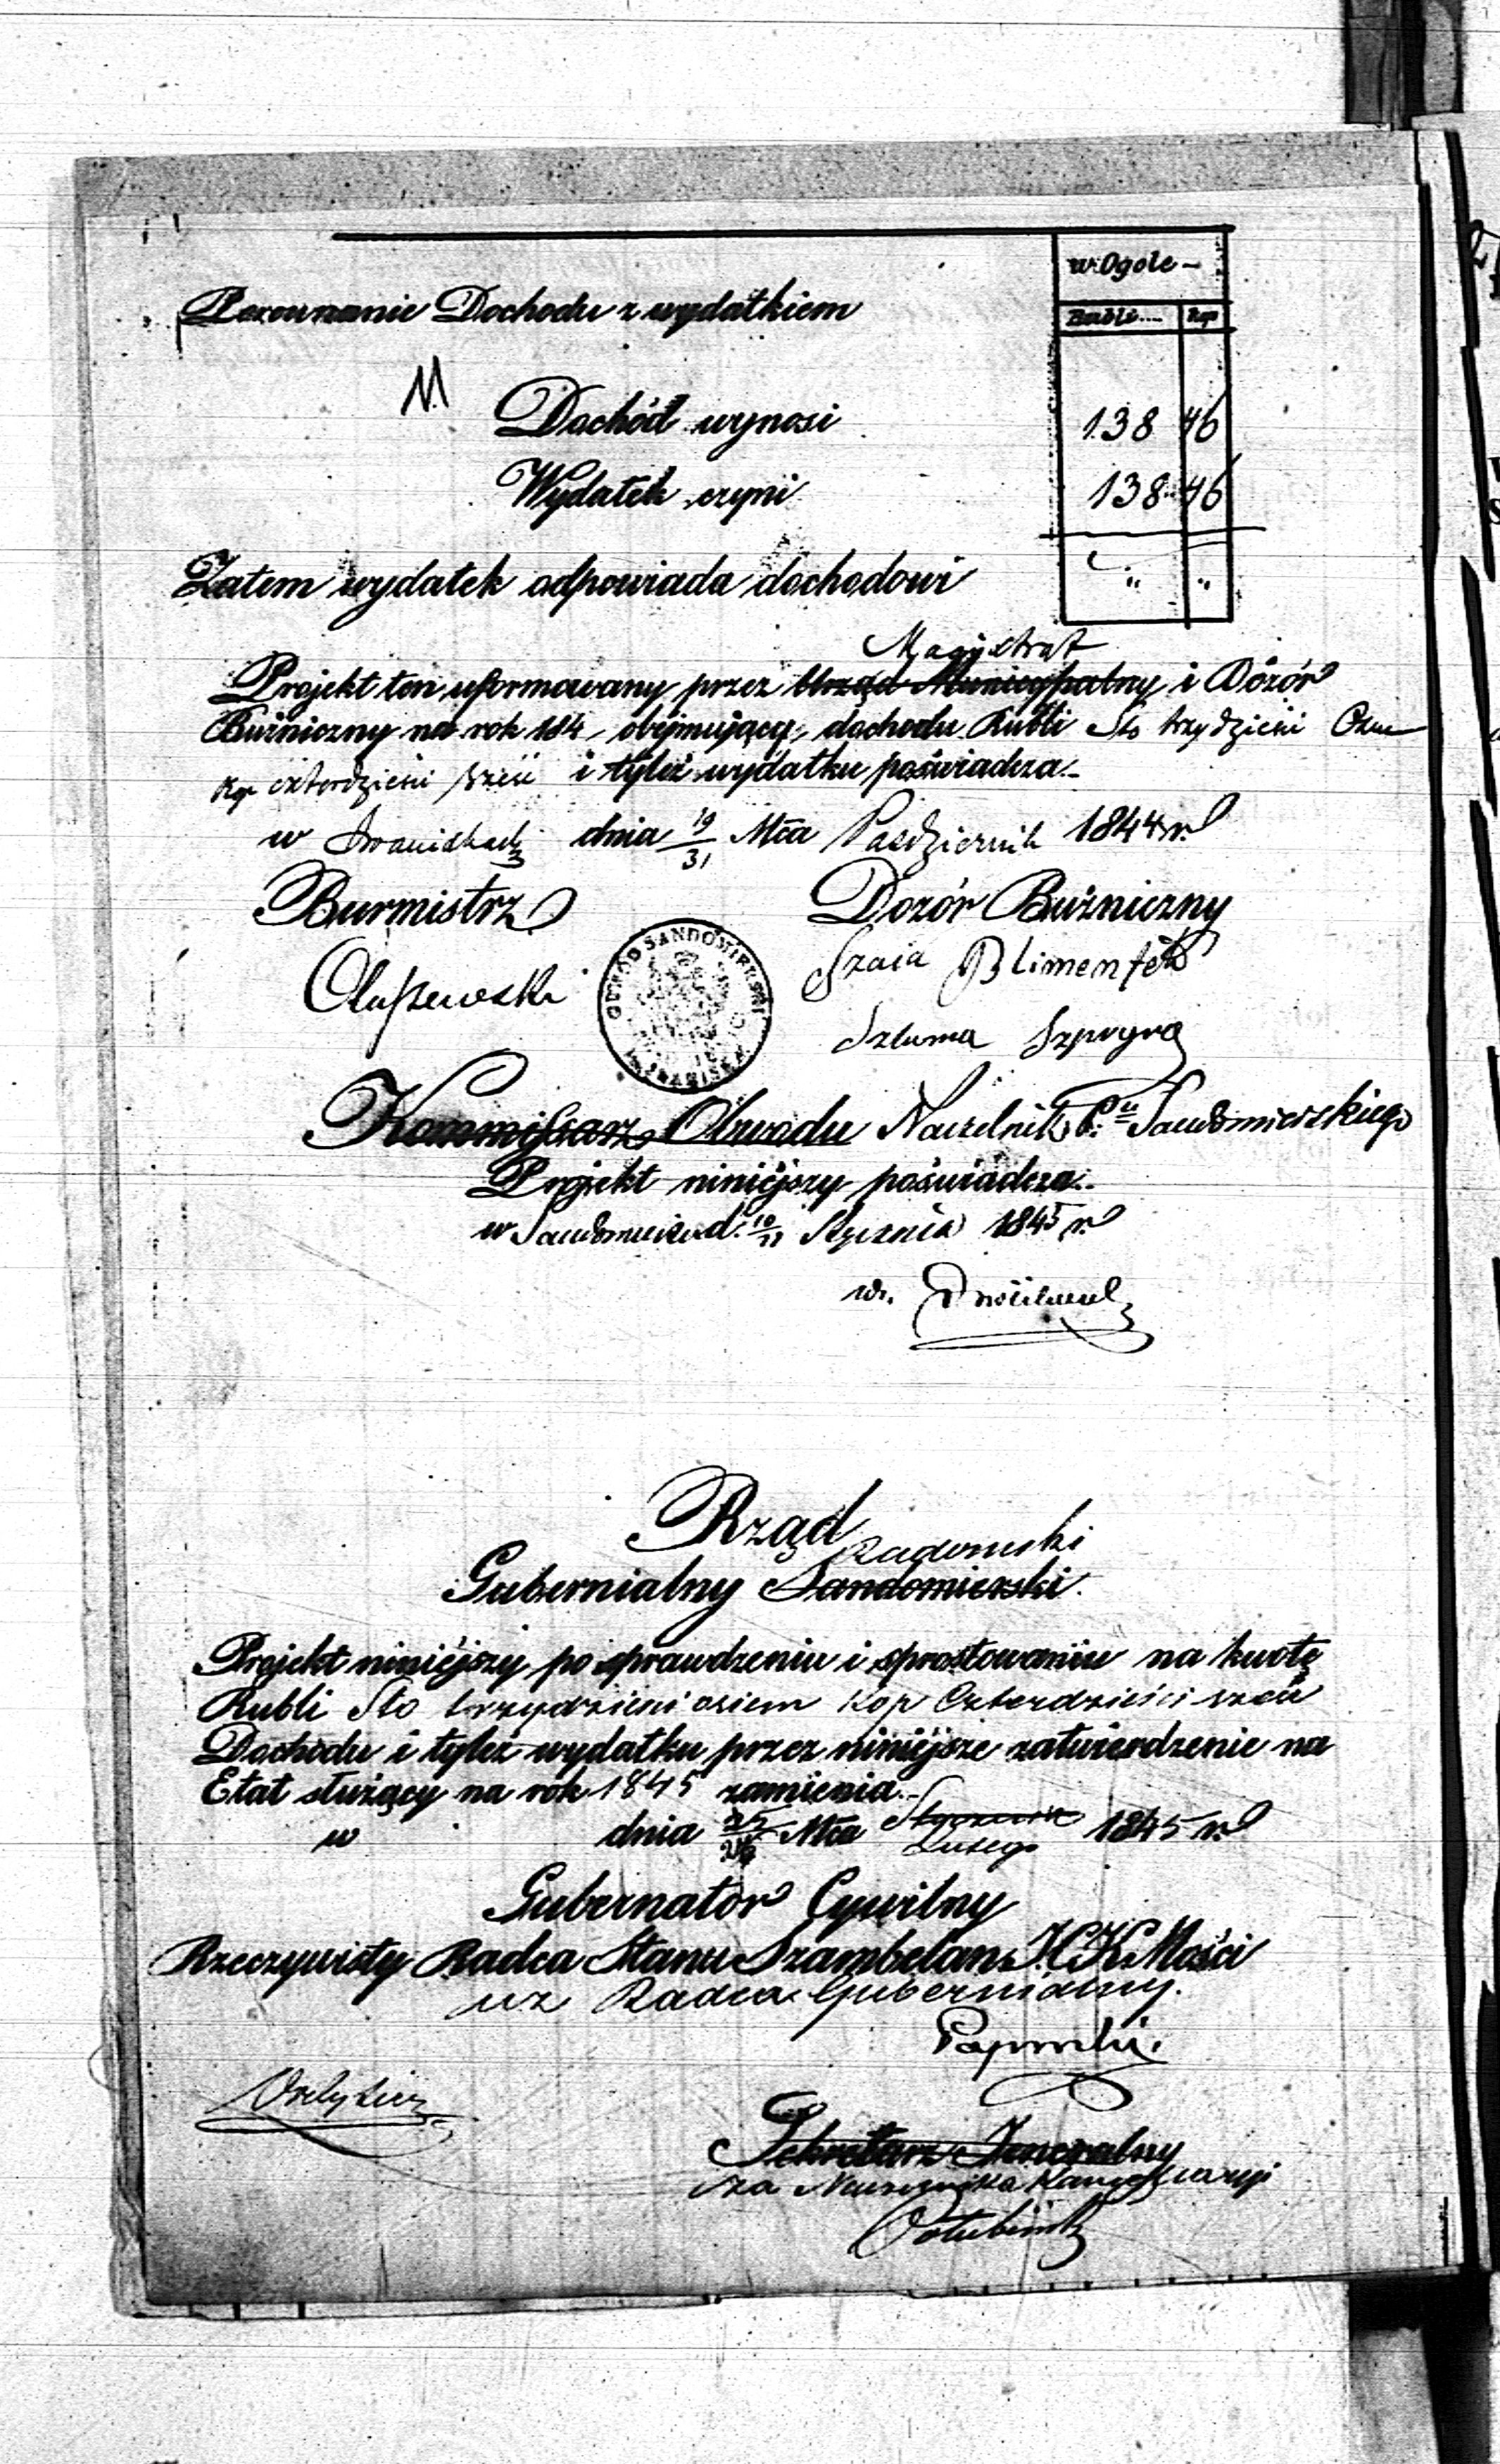 w Ogóle
Porównanie Dochodu z wydatkiem
Ruble Kop
Dochód wynosi 138 46
Wydatek czyni 138 46
Zatem wydatek odpowiada dochodowi " "
Magistrat
Projekt ten uformowany przez Urząd Municypalny i Dozór
Bużniczny na rok 184 obejmujący dochodu Rubli Sto trzydzieści Ośm
Kp czterdzieści sześć i tyleż wydatku poświadcza
w Iwaniskach dnia 19/31 Mca Pasdziernik 1844 r.
Burmistrz Dozór Bużniczny
Szaia Blimenfeld
Olszewski
OBWÓD SANDOMIERSKI
Szlama Szpryng
Kommissarz Obwodu Naczelnik Ptu Sandomierskiego
Projekt niniejszy poświadcza
w Sandomierzu d. Stycznia 1845 r.
Rząd
Radomski
Gubernialny Sandomierski
Projekt niniejszy po sprawdzeniu i sprostowaniu na kwotę
Rubli Sto trzydzieści osiem Kop Czterdzieści sześć
Dochodu i tyleż wydatku przez niniejsze zatwierdzenie na
Etat służący na rok 1845 zamienia
w dnia Mca Stycznia 1845 r.
Lutego
Gubernator Cywilny
Rzeczywisty Radca Stanu Szambelan J.C.K. Mości
wz Radca Gubernialny
Sekretarz Jeneralny
za Naczelnika Kancellaryi